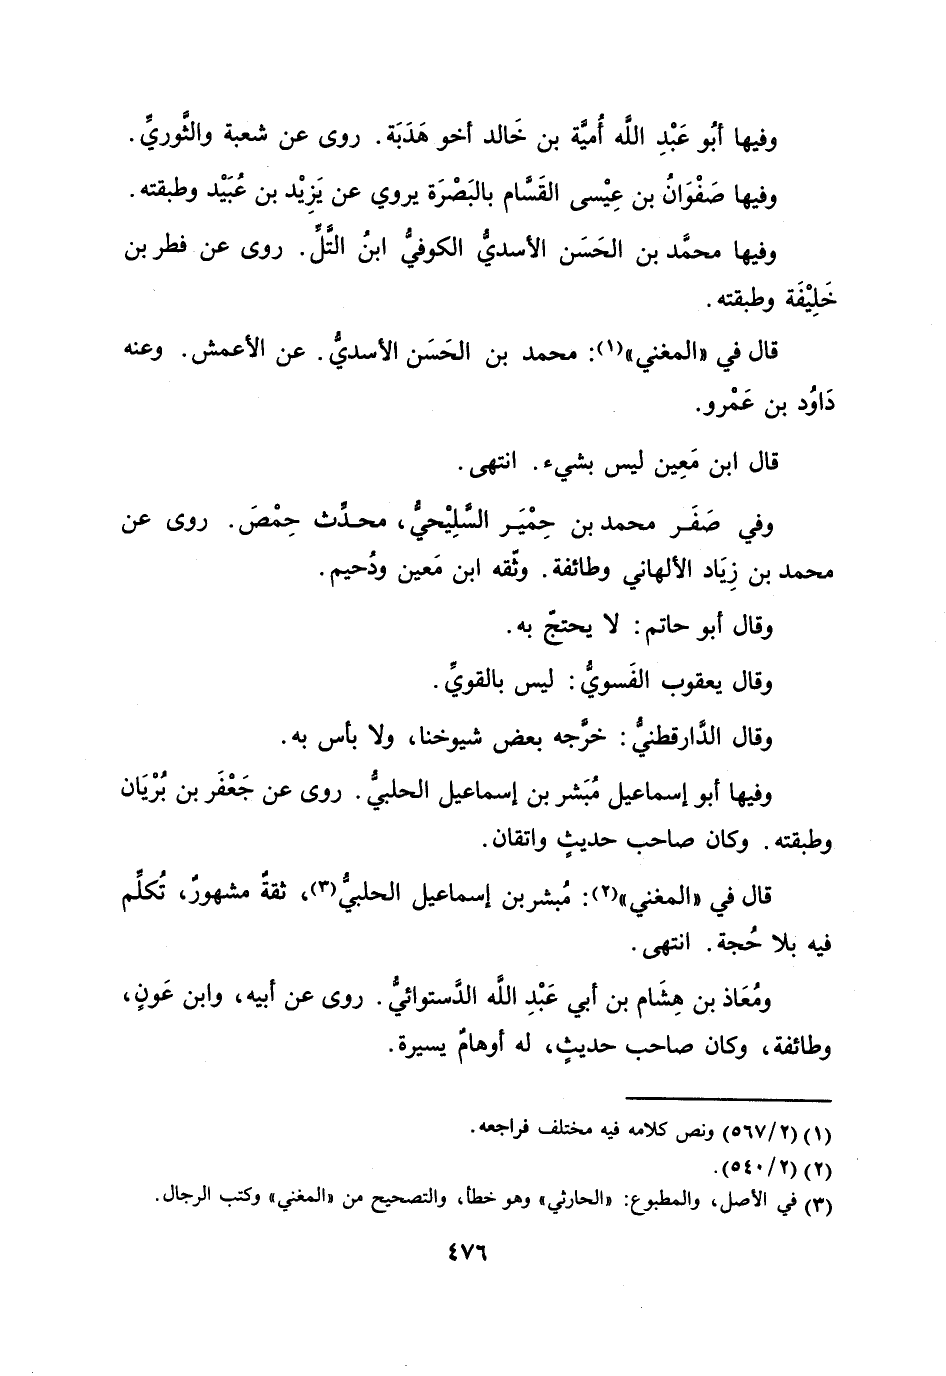 وفيها أبُو عَبْدِ اللَّه أُميَّة بن خَالد أخو هَدَبَة. روى عن شعبة والثَّوريِّ.
وفيها صَفْوَانُ بن عِيْسى القَسَّام بالبَصْرَة يروي عن يَزِيْد بن عُبَيْد وطبقته.
وفيها محمَّد بن الحَسَن الأسديُّ الكوفيُّ ابنُ التَّلِّ. روى عن فطر بن
خَلِيْفَة وطبقته.
قال في «المغني»(١): محمد بن الحَسَن الأسديُّ. عن الأعمش. وعنه
دَاوُد بن عَمْرو.
قال ابن مَعِين ليس بشيء. انتهى.
وفي صَفَر محمد بن حِمْيَر السَّلِيْحيُّ، محدِّث حِمْصَ. روى عن
محمد بن زِيَاد الألهاني وطائفة. وثّقه ابن مَعين ودُحيم.
وقال أبو حاتم: لا يحتجّ به.
وقال يعقوب الفَسويُّ: ليس بالقويِّ.
وقال الدَّارقطنيُّ: خرَّجه بعض شيوخنا، ولا بأس به.
وفيها أبو إسماعيل مُبَشر بن إسماعيل الحلبيُّ. روى عن جَعْفَر بن بُرْيَان
وطبقته. وكان صاحب حديثٍ واتقان.
قال في «المغني»(٢): مُبشر بن إسماعيل الحلبيُّ(٣)، ثقةٌ مشهورٌ، تُكلِّم
فيه بلا حُجة. انتهى.
ومُعَاذ بن هِشَام بن أبي عَبْدِ اللَّه الدَّستوائيُّ. روى عن أبيه، وابن عَونٍ،
وطائفة، وكان صاحب حديثٍ، له أوهامٌ يسيرة.
(١) (٥٦٧/٢) ونص كلامه فيه مختلف فراجعه.
(٢) (٥٤٠/٢).
(٣) في الأصل، والمطبوع: «الحارثي» وهو خطأ، والتصحيح من «المغني» وكتب الرجال.
٤٧٦